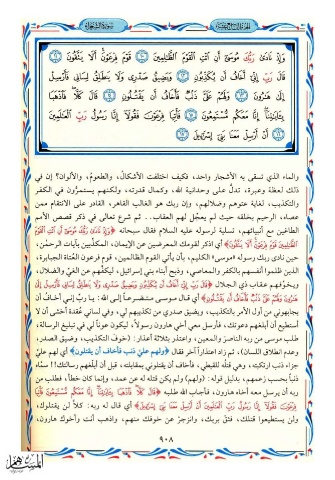 الجزء التاسع عشر
سورة الشعراء
وَإِذْ نَادَىٰ رَبُّكَ مُوسَىٰ أَنِ ائْتِ الْقَوْمَ الظَّالِمِينَ ﴿١٠﴾ قَوْمَ فِرْعَوْنَ أَلَا يَتَّقُونَ ﴿١١﴾
قَالَ رَبِّ إِنِّي أَخَافُ أَن يُكَذِّبُونِ ﴿١٢﴾ وَيَضِيقُ صَدْرِي وَلَا يَنطَلِقُ لِسَانِي فَأَرْسِلْ
إِلَىٰ هَارُونَ ﴿١٣﴾ وَلَهُمْ عَلَيَّ ذَنبٌ فَأَخَافُ أَن يَقْتُلُونِ ﴿١٤﴾ قَالَ كَلَّا فَاذْهَبَا
بِآيَاتِنَا إِنَّا مَعَكُم مُّسْتَمِعُونَ ﴿١٥﴾ فَأْتِيَا فِرْعَوْنَ فَقُولَا إِنَّا رَسُولُ رَبِّ الْعَالَمِينَ
﴿١٦﴾ أَنْ أَرْسِلْ مَعَنَا بَنِي إِسْرَائِيلَ ﴿١٧﴾
والماء الذي تسقى به الأشجار واحد، فكيف اختلفت الأشكال، والطعوم، والألوان؟ إن في
ذلك لعظة وعبرة، تدلُّ على وحدانية الله، وكمال قدرته، ولكنهم يستمرُّون في الكفر
والتكذيب، لغاية عتوهم وضلالهم، وإن ربك هو الغالب القاهر، القادر على الانتقام ممن
عصاه، الرحيم بخلقه حيث لم يعجّل لهم العقاب.. ثم شرع تعالى في ذكر قصص الأمم
الطاغين مع أنبيائهم، تسلية لرسوله عليه السلام فقال سبحانه ﴿وَإِذْ نَادَىٰ رَبُّكَ مُوسَىٰ أَنِ ائْتِ الْقَوْمَ
الظَّالِمِينَ قَوْمَ فِرْعَوْنَ أَلَا يَتَّقُونَ﴾ أي اذكر لقومك المعرضين عن الإيمان، المكذِّبين بآيات الرحمن،
حين نادى ربك رسوله «موسى» الكليم، بأن يأتي القوم الظالمين، قوم فرعون العُتاة الجبابرة،
الذين ظلموا أنفسهم بالكفر والمعاصي، وذبح أبناء بني إسرائيل، ليكفَّهم عن الغيِّ والضلال،
ويخوِّفهم عقاب ذي الجلال ﴿قَالَ رَبِّ إِنِّي أَخَافُ أَن يُكَذِّبُونِ وَيَضِيقُ صَدْرِي وَلَا يَنطَلِقُ لِسَانِي فَأَرْسِلْ إِلَىٰ
هَارُونَ وَلَهُمْ عَلَيَّ ذَنبٌ فَأَخَافُ أَن يَقْتُلُونِ﴾ أي قال موسى متضرعاً إلى الله: يا ربّ إني أخاف أن
يجابهوني من أول الأمر بالتكذيب، ويضيق صدري من تكذيبهم لي، وفي لساني عُقدة أخشى أن لا
أستطيع أن أبلغهم دعوتك، فأرسل معي أخي هارون رسولاً، ليكون عوناً لي في تبليغ الرسالة،
طلب موسى من ربه الناصر والمعين، واعتذر بثلاثة أعذار: (خوف التكذيب، وضيق الصدر،
وعدم انطلاق اللسان)، ثم زاد اعتذاراً آخر فقال ﴿ولهم عليَّ ذنب فأخاف أن يقتلون﴾ أي لهم عليَّ
جزاء ذنب ارتكبته، وهي قتلُه للقبطي، فأخاف أن يقتلوني بمقابلته، قبل أن أبلغهم رسالتك!! سمَّاه
ذنباً بحسب زعمهم، بدليل قوله: (ولهم) ولم يكن قتله له عن عمد، وإنما كان خطأً، فطلب من
ربه أن يرسل معه أخاه هارون، فأجاب الله طلبه ﴿قَالَ كَلَّا فَاذْهَبَا بِآيَاتِنَا إِنَّا مَعَكُم مُّسْتَمِعُونَ فَأْتِيَا
فِرْعَوْنَ فَقُولَا إِنَّا رَسُولُ رَبِّ الْعَالَمِينَ أَنْ أَرْسِلْ مَعَنَا بَنِي إِسْرَائِيلَ﴾ أي قال له ربه: كلَّا لن يقتلوك،
ولن يستطيعوا قتلك، فثق بربك، وانزجر عن خوفك منهم، واذهب أنت وأخوك هارون،
٩٠٨